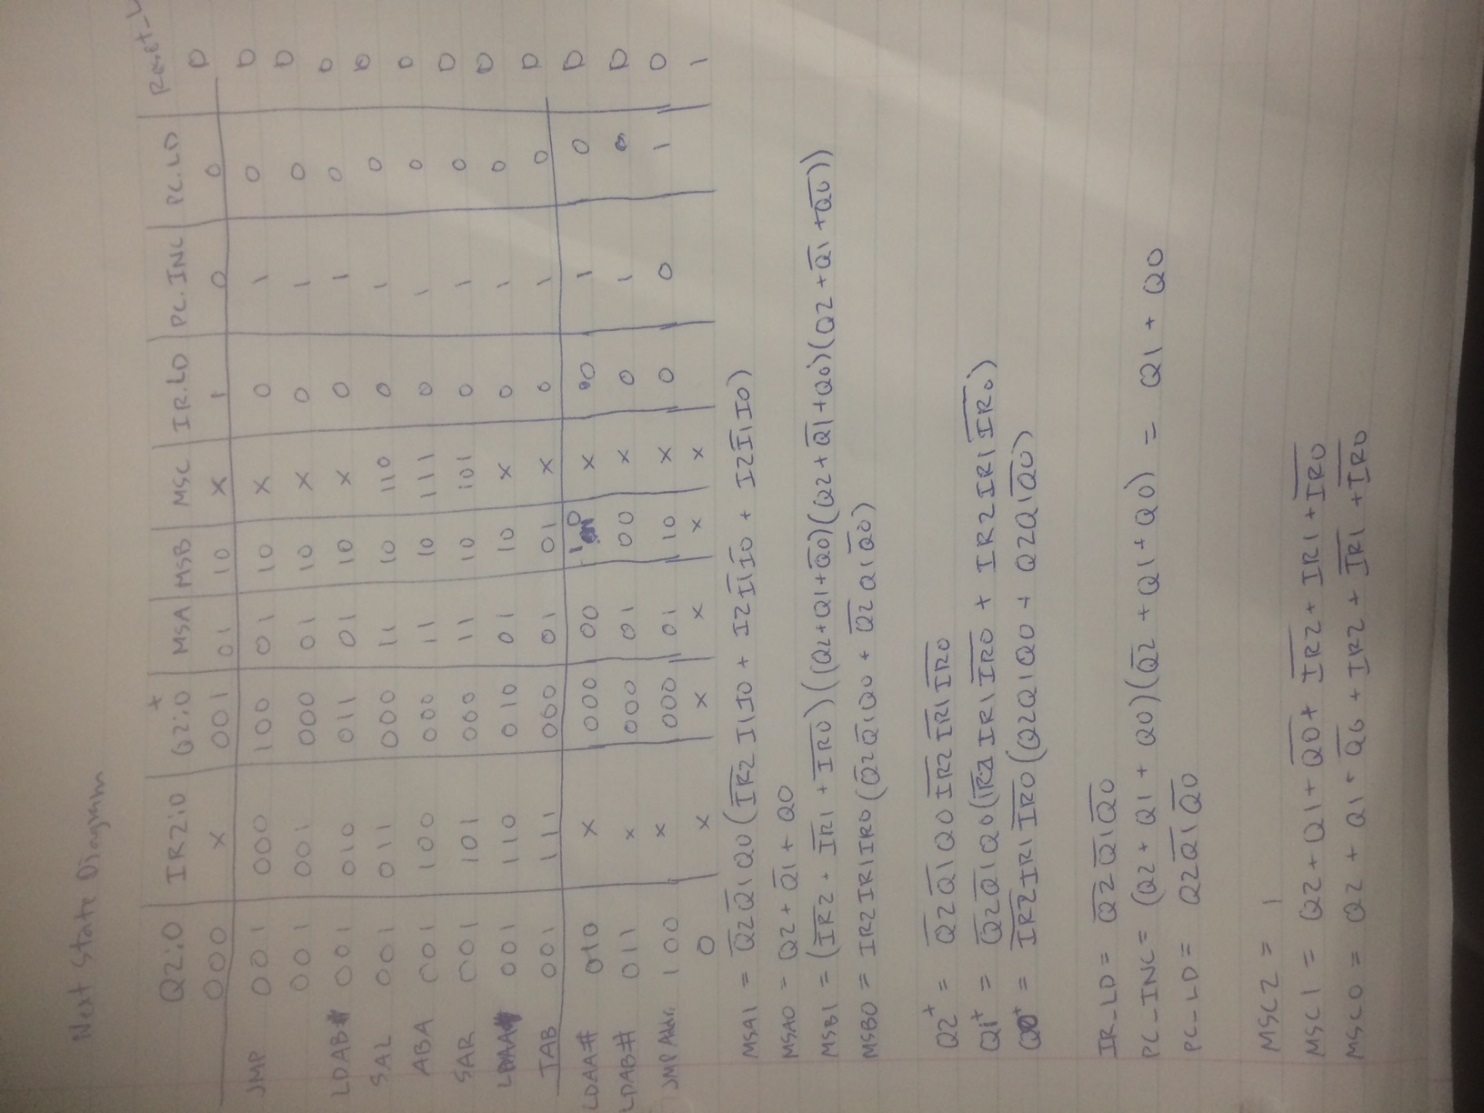 Next State Diagram
Q2:0 | IR2:0 | Q2:0⁺ | MSA | MSB | MSC | IR.LD | PC.INC | PC.LD | Reset_L
000 x 001 01 10 x 1 0 0 0
JMP 001 000 100 01 10 x 0 1 0 0
001 001 000 01 10 x 0 1 0 0
LDAB# 001 010 011 01 10 x 0 1 0 0
SAL 001 011 000 11 10 110 0 1 0 0
ABA 001 100 000 11 10 111 0 1 0 0
SAR 001 101 000 11 10 101 0 1 0 0
LDAA# 001 110 010 01 10 x 0 1 0 0
TAB 001 111 000 01 01 x 0 1 0 0
LDAA# 010 x 000 00 10 x 0 1 0 0
LDAB# 011 x 000 01 00 x 0 1 0 0
JMP Addr. 100 x 000 01 10 x 0 0 1 0
0 x x x x x 1
MSA1 = Q̅2̅Q̅1̅Q0(I̅R̅2̅I1I0 + I2I̅1̅I̅0̅ + I2I̅1̅I0)
MSA0 = Q2 + Q̅1̅ + Q0
MSB1 = (I̅R̅2̅ + I̅R̅1̅ + I̅R̅0̅)((Q2+Q1+Q̅0̅)(Q2+Q̅1̅+Q0)(Q2+Q̅1̅+Q̅0̅))
MSB0 = IR2IR1IR0(Q̅2̅Q̅1̅Q0 + Q̅2̅Q1Q̅0̅)
Q2⁺ = Q̅2̅Q̅1̅Q0I̅R̅2̅I̅R̅1̅I̅R̅0̅
Q1⁺ = Q̅2̅Q̅1̅Q0(I̅R̅2̅IR1I̅R̅0̅ + IR2IR1I̅R̅0̅)
Q0⁺ = I̅R̅2̅IR1I̅R̅0̅(Q2Q1Q0 + Q2Q1Q̅0̅)
IR_LD = Q̅2̅Q̅1̅Q̅0̅
PC_INC = (Q2 + Q1 + Q0)(Q̅2̅ + Q1 + Q0) = Q1 + Q0
PC_LD = Q2Q̅1̅Q̅0̅
MSC2 = 1
MSC1 = Q2 + Q1 + Q̅0̅ + I̅R̅2̅ + IR1 + I̅R̅0̅
MSC0 = Q2 + Q1 + Q̅0̅ + IR2 + I̅R̅1̅ + I̅R̅0̅